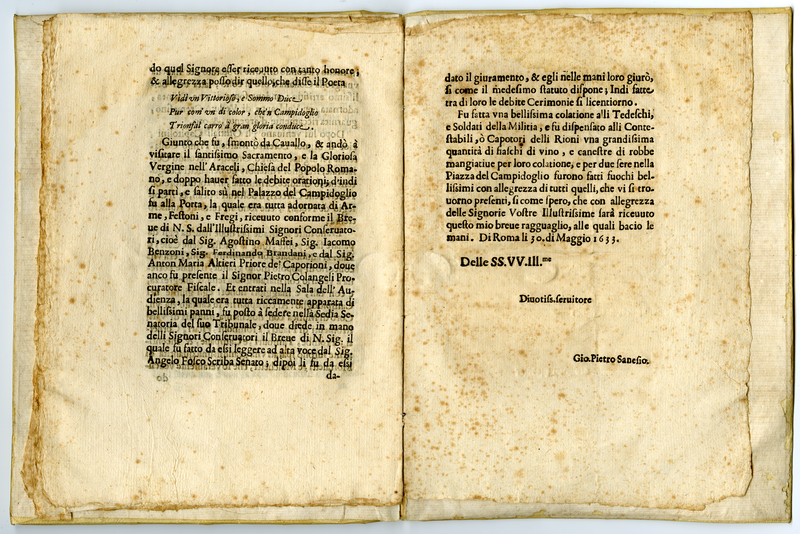 do quel Signore esser riceuuto con tanto honore,
& allegrezza posso dir quello, che disse il Poeta
Vidi vn Vittorioso, e Sommo Duce
Pur com'vn di color, che'n Campidoglio
Trionfal carro à gran gloria conduce.
Giunto che fu, smontò da Cauallo, & andò à
visitare il santissimo Sacramento, e la Gloriosa
Vergine nell'Araceli, Chiesa del Popolo Roma-
no, e doppo hauer fatto le debite orationi, d'indi
si partì, e salito sù nel Palazzo del Campidoglio
fu alla Porta, la quale era tutta adornata di Ar-
me, Festoni, e Fregi, riceuuto conforme il Bre-
ue di N. S. dall'Illustrissimi Signori Conseruato-
ri, cioè dal Sig. Agostino Maffei, Sig. Iacomo
Benzoni, Sig. Ferdinando Brandani, e dal Sig.
Anton Maria Altieri Priore de' Caporioni, doue
anco fu presente il Signor Pietro Colangeli Pro-
curatore Fiscale. Et entrati nella Sala dell'Au-
dienza, la quale era tutta riccamente apparata di
bellissimi panni, fu posto à sedere nella Sedia Se-
natoria del suo Tribunale, doue diede in mano
delli Signori Conseruatori il Breue di N. Sig. il
quale fu fatto da essi leggere ad alta voce dal Sig.
Angelo Fosco Scriba Senato; dipoi li fu da essi
da-
dato il giuramento, & egli nelle mani loro giurò,
si come il medesimo statuto dispone; Indi fatte
tra di loro le debite Cerimonie si licentiorno.
Fu fatta vna bellissima colatione a'li Tedeschi,
e Soldati della Militia, e fu dispensato alli Conte-
stabili, ò Capotori delli Rioni vna grandissima
quantità di fiaschi di vino, e canestre di robbe
mangiatiue per loro colatione, e per due sere nella
Piazza del Campidoglio furono fatti fuochi bel-
lissimi con allegrezza di tutti quelli, che vi si tro-
uorno presenti, si come spero, che con allegrezza
delle Signorie Vostre Illustrissime sarà riceuuto
questo mio breue ragguaglio, alle quali bacio le
mani. Di Roma li 30. di Maggio 1633.
Delle SS.VV.Ill.me
Diuotiss. seruitore
Gio. Pietro Sanesio.